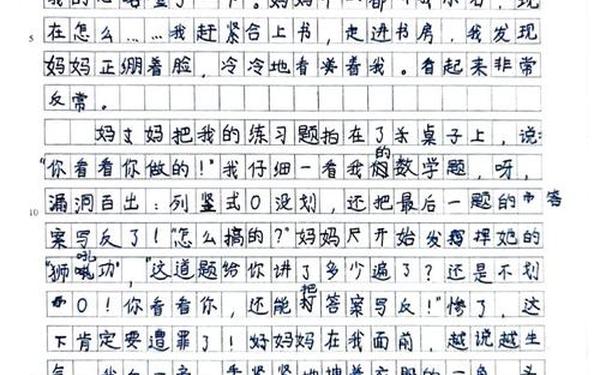 在怎么……我赶紧合上书，走进书房，我发现
5
妈妈正绷着脸，冷冷地看着我。看起来非常
反常。
妈妈把我的练习题拍在了桌子上，说：
"你看看你做的！"我仔细一看我的数学题，呀，
漏洞百出：列竖式0没划，还把最后一题的答
10
案写反了！"怎么搞的？"妈妈开始发挥她的
"狮吼功"，"这道题给你讲了多少遍了？还是不划
0！你看看你，还能把答案写反！"惨了，这
下肯定要遭罪了！妈妈在我面前，越说越生